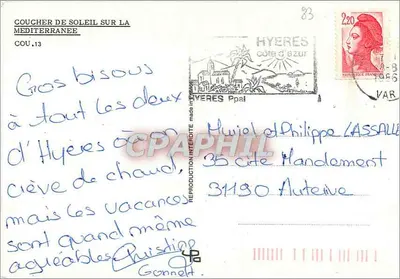 COUCHER DE SOLEIL SUR LA
MEDITERRANEE
COU.13
83
HYERES
côte d'azur
HYERES Ppal
2,20
1986
VAR
Gros bisous
à tout les deux
d'Hyères à on
crève de chaud,
mais les vacances
sont quand même
agréables. Christine
REPRODUCTION INTERDITE
CPAPHIL
Muriel et Philippe LASSALLE
35 cité Mandement
31190 Auterive